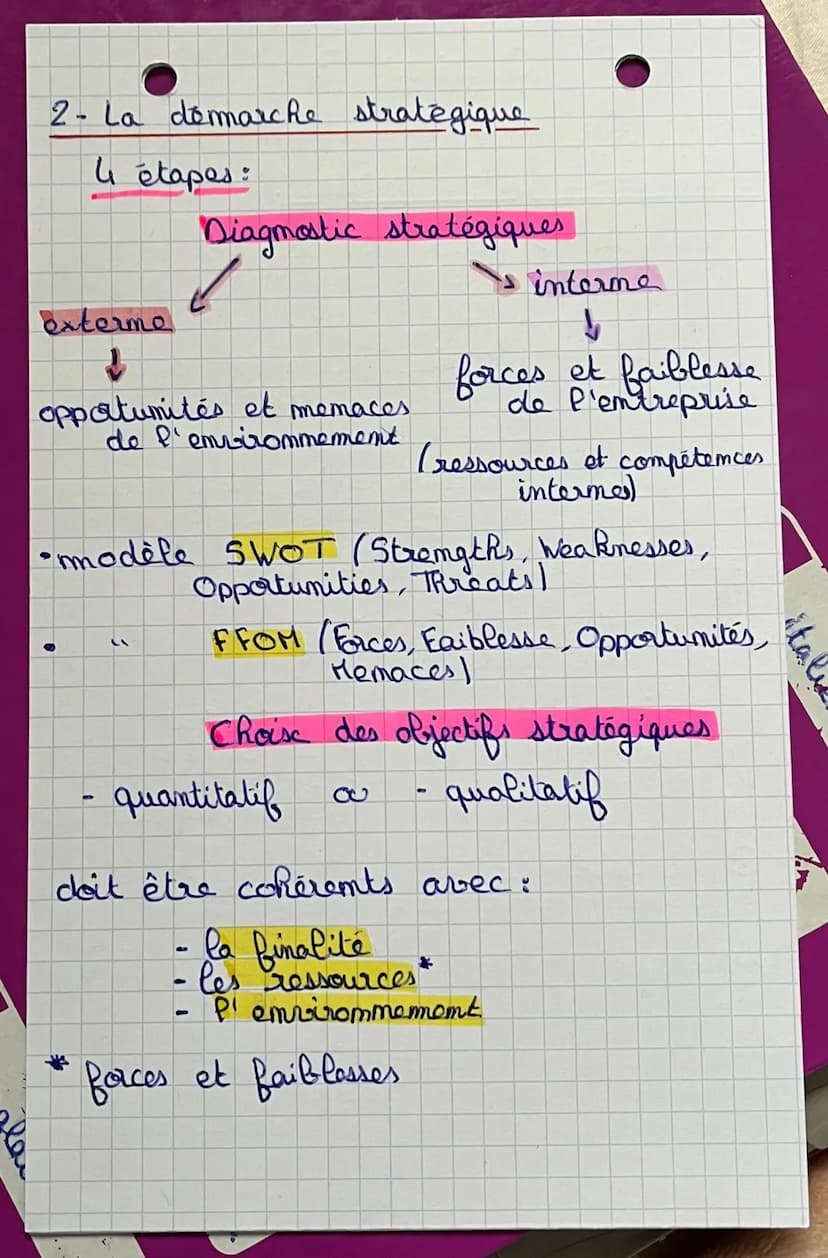 2- La démarche stratégique
4 étapes :
Diagnostic stratégiques
interne
externe
forces et faiblesse
de l'entreprise
opportunités et menaces
de l'environnement
(ressources et compétences
internes)
• modèle SWOT (Strengths, Weaknesses,
Opportunities, Threats)
• " FFOM (Forces, Faiblesse, Opportunités,
Menaces)
Choix des objectifs stratégiques
- quantitatif ou - qualitatif
doit être cohérents avec :
- la finalité
- les ressources*
- l'environnement
* forces et faiblesses